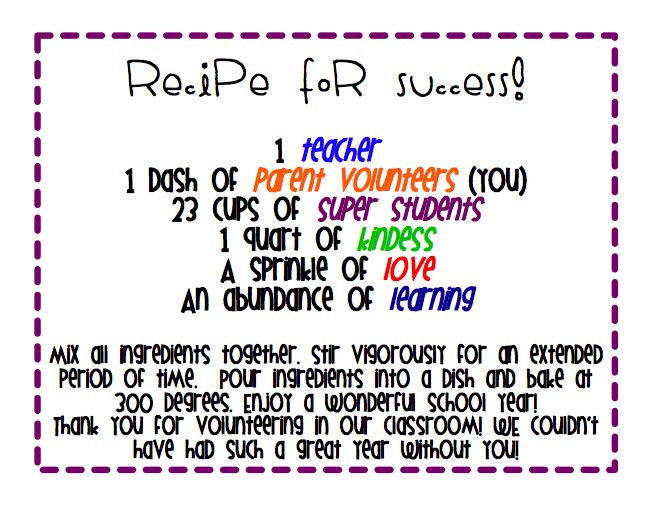 Recipe for success!
1 teacher
1 Dash of Parent Volunteers (YOU)
23 cups of super students
1 quart of kindess
A sprinkle of love
An abundance of learning
Mix all ingredients together. Stir vigorously for an extended
period of time. Pour ingredients into a dish and bake at
300 degrees. Enjoy a wonderful school year!
Thank you for volunteering in our classroom! WE couldn't
have had such a great year without you!